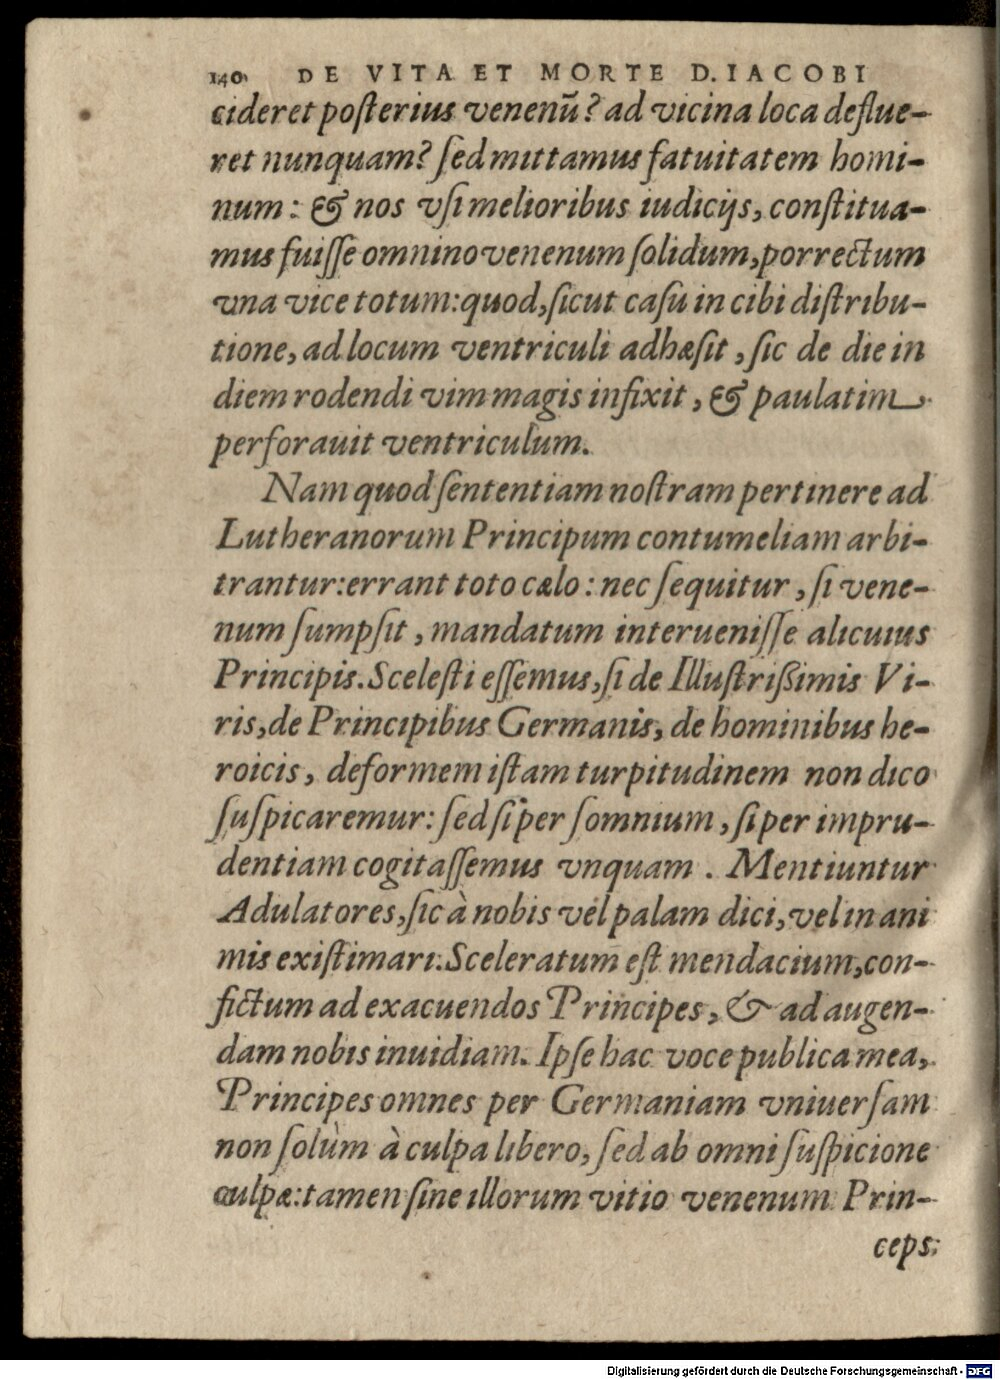 140 DE VITA ET MORTE D. IACOBI
cideret posterius venenū? ad vicina loca deflue-
ret nunquam? sed mittamus fatuitatem homi-
num: & nos vsi melioribus iudicijs, constitua-
mus fuisse omnino venenum solidum, porrectum
vna vice totum: quod, sicut casu in cibi distribu-
tione, ad locum ventriculi adhæsit, sic de die in
diem rodendi vim magis infixit, & paulatim
perforauit ventriculum.
Nam quod sententiam nostram pertinere ad
Lutheranorum Principum contumeliam arbi-
trantur: errant toto cælo: nec sequitur, si vene-
num sumpsit, mandatum interuenisse alicuius
Principis. Scelesti essemus, si de Illustrißimis Vi-
ris, de Principibus Germanis, de hominibus he-
roicis, deformem istam turpitudinem non dico
suspicaremur: sed si per somnium, si per impru-
dentiam cogitassemus vnquam. Mentiuntur
Adulatores, sic à nobis vel palam dici, vel in ani
mis existimari. Sceleratum est mendacium, con-
fictum ad exacuendos Principes, & ad augen-
dam nobis inuidiam. Ipse hac voce publica mea,
Principes omnes per Germaniam vniuersam
non solùm à culpa libero, sed ab omni suspicione
culpæ: tamen sine illorum vitio venenum Prin-
ceps
Digitalisierung gefördert durch die Deutsche Forschungsgemeinschaft - DFG